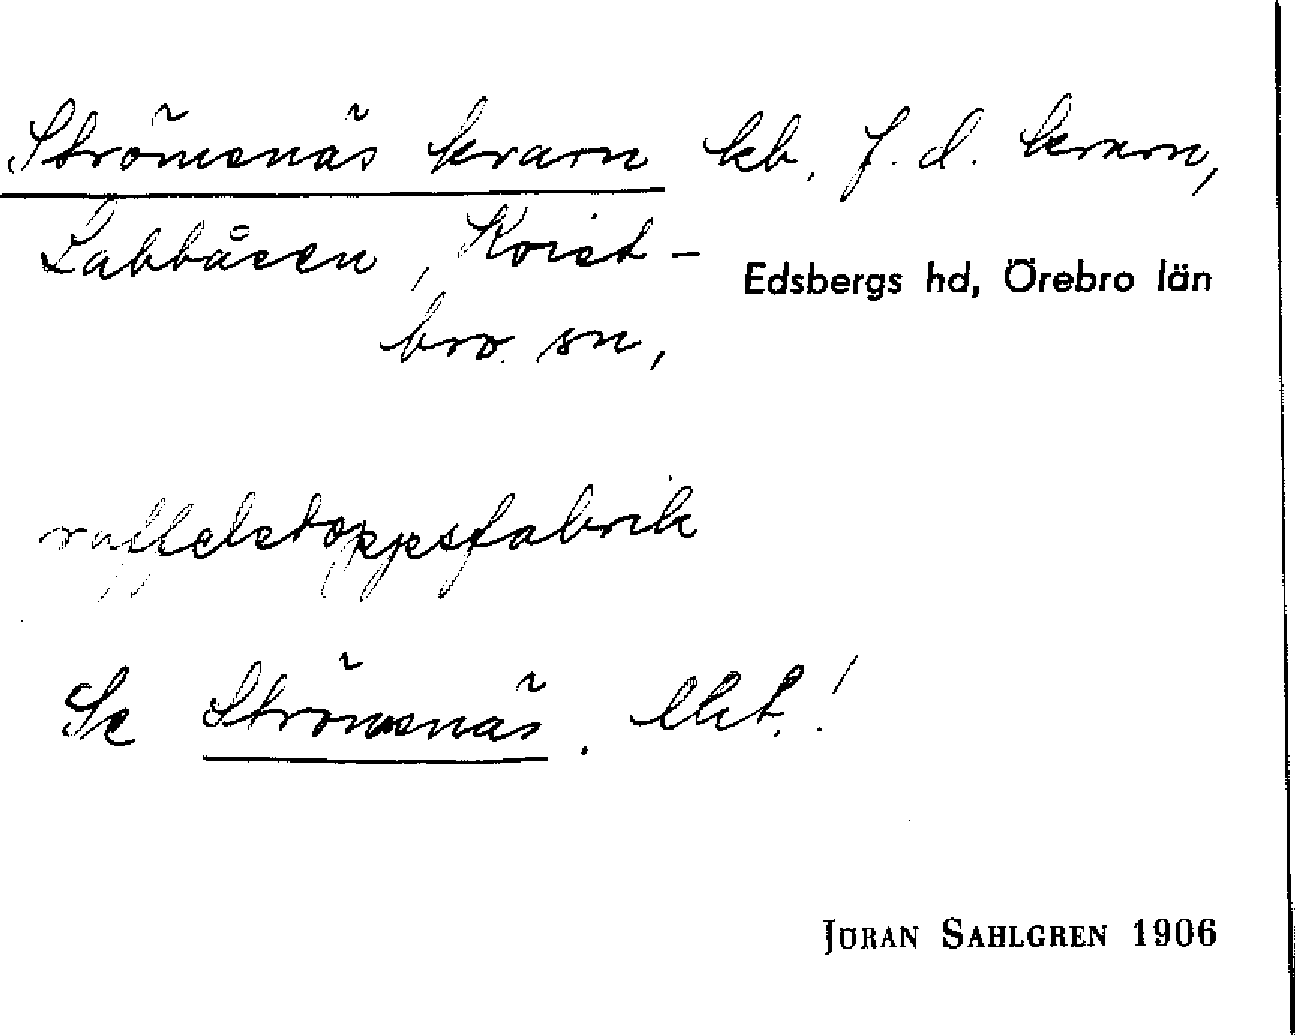 Strömsnäs kvarn kb. f. d. kvarn,
Labbåsen, Kvist-
bro sn,
Edsbergs hd, Örebro län
raffelstoppsfabrik
Se Strömsnäs.
JÖRAN SAHLGREN 1906